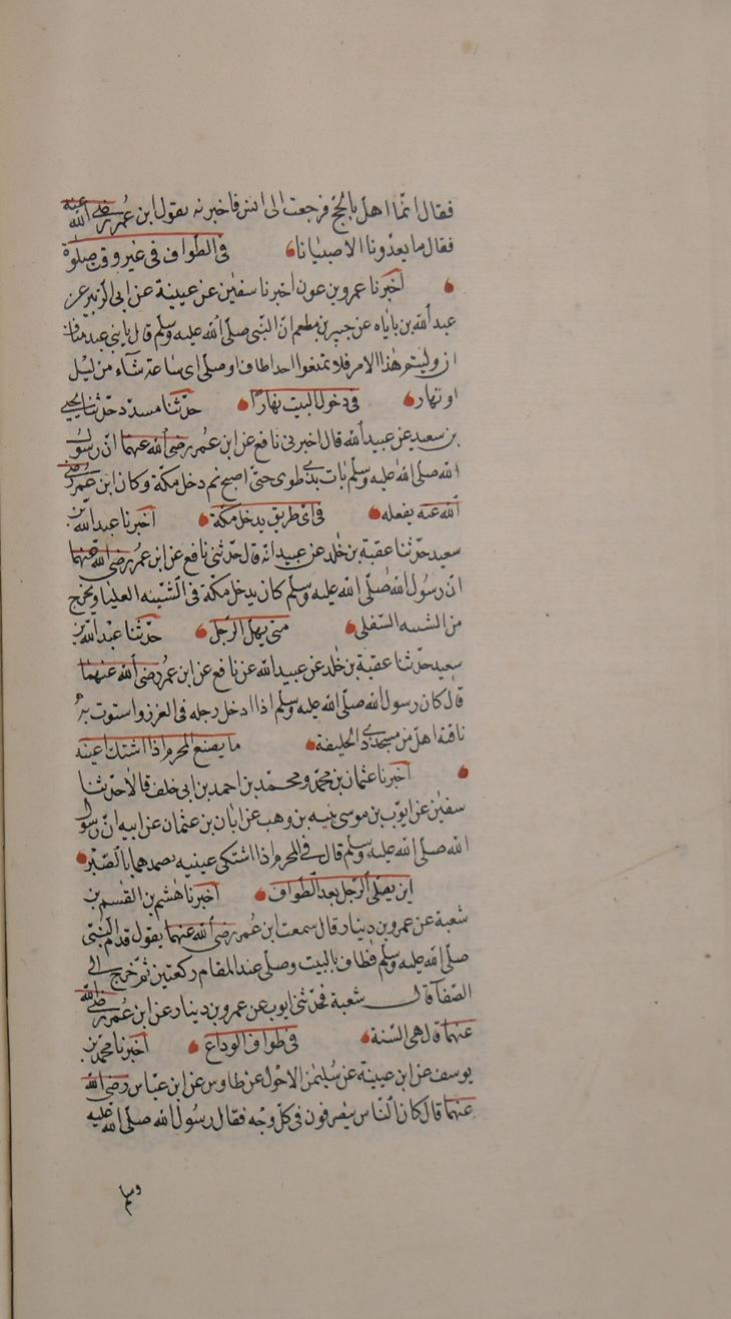 فقال انما اهل بالحج فرجعت الى انس فاخبرته بقول ابن عمر رضى الله عنه
فقال ما يعدونا الا صبيانا في الطواف في غير وقت صلوة
اخبرنا عمرو بن عون اخبرنا سفين عن عيينة عن ابى الزبير عن
عبد الله بن باباه عن جبير بن مطعم ان النبى صلى الله عليه وسلم قال يا بنى عبد مناف
ان وليتم هذا الامر فلا تمنعوا احدا طاف او صلى اى ساعة شاء من ليل
او نهار في دخول البيت نهارا حدثنا مسدد حدثنا يحيى
بن سعيد عن عبيد الله قال اخبرنى نافع عن ابن عمر رضى الله عنهما ان رسول
الله صلى الله عليه وسلم بات بذى طوى حتى اصبح ثم دخل مكة وكان ابن عمر رضى
الله عنه يفعله في اى طريق يدخل مكة اخبرنا عبد الله بن
سعيد حدثنا عقبة بن خلد عن عبيد الله قال حدثنى نافع عن ابن عمر رضى الله عنهما
ان رسول الله صلى الله عليه وسلم كان يدخل مكة في الثنيه العليا ويخرج
من الثنيه السفلى متى يهل الرجل حدثنا عبد الله بن
سعيد حدثنا عقبة بن خلد عن عبيد الله عن نافع عن ابن عمر رضى الله عنهما
قال كان رسول الله صلى الله عليه وسلم اذا ادخل رجله في الغرز واستوت به
ناقته اهل من مسجد ذى الحليفة ما يصنع المحرم اذا اشتك عينه
اخبرنا عثمان بن محمد ومحمد بن احمد بن ابى خلف قالا حدثنا
سفين عن ايوب بن موسى عن نبيه بن وهب عن ابان بن عثمان عن ابيه ان رسول
الله صلى الله عليه وسلم قال في المحرم اذا اشتكى عينيه يضمدهما بالصبر
اين يصلى الرجل بعد الطواف اخبرنا هشم بن القسم بن
شعبة عن عمرو بن دينار قال سمعت ابن عمر رضى الله عنهما يقول قدم النبى
صلى الله عليه وسلم فطاف بالبيت وصلى عند المقام ركعتين ثم خرج الى
الصفا قال شعبة فحدثنى ايوب عن عمرو بن دينار عن ابن عمر رضى الله
عنهما قال هى السنة في طواف الوداع اخبرنا محمد بن
يوسف عن ابن عيينة عن سليمن الاحول عن طاوس عن ابن عباس رضى الله
عنهما قال كان الناس ينصرفون في كل وجه فقال رسول الله صلى الله عليه
وسلم